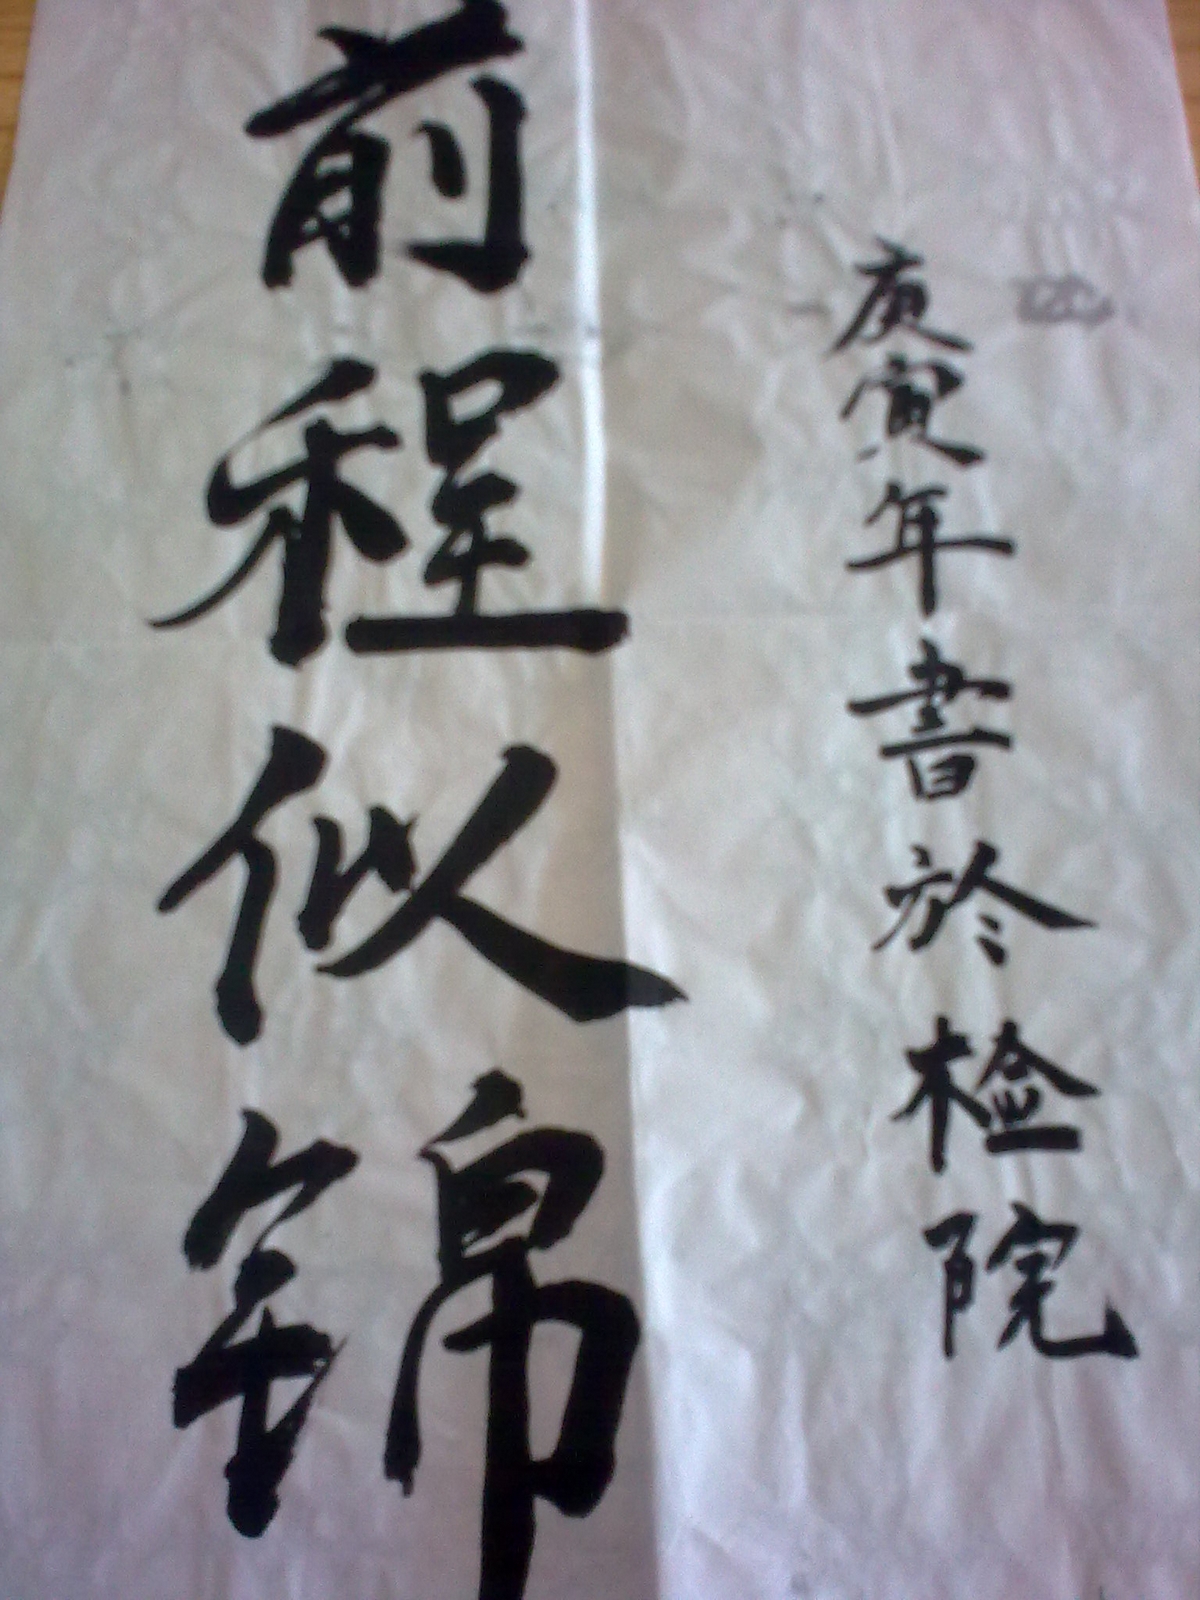 庚寅年書於检院
前程似锦